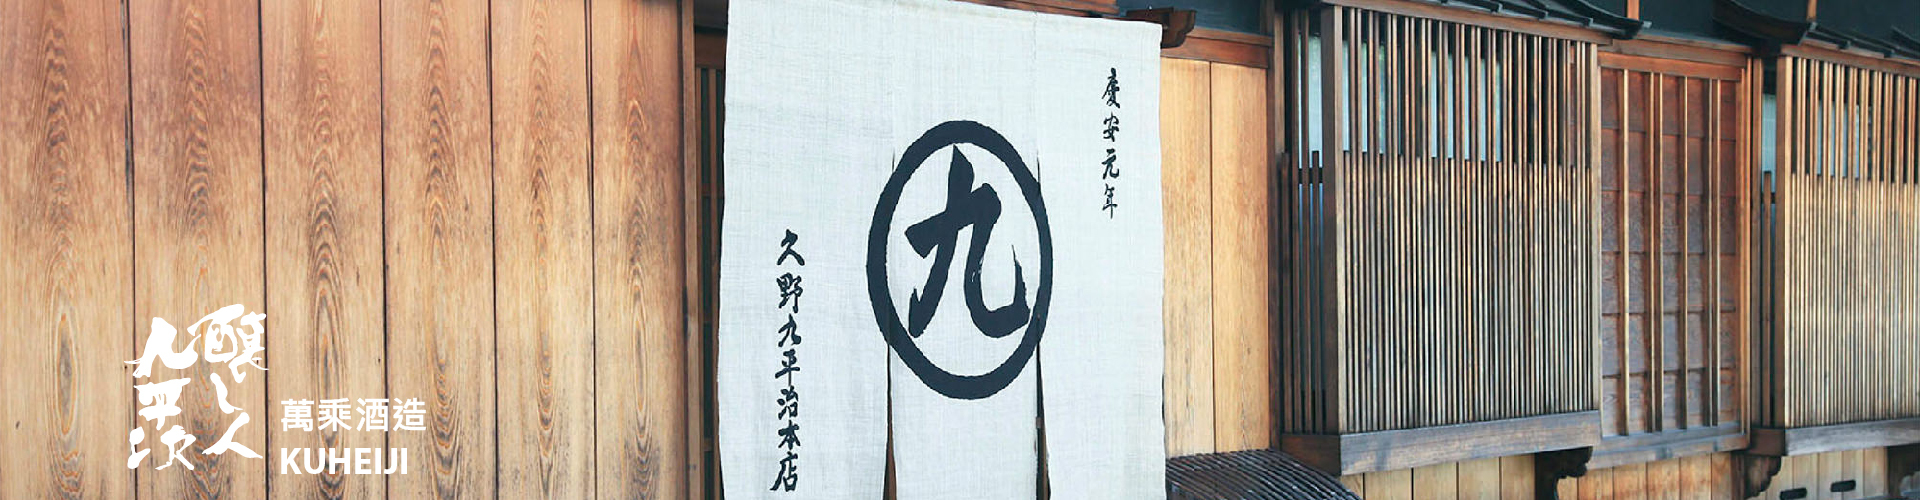 慶安元年
九
久野九平治本店
醸し人
九平次
萬乘酒造
KUHEIJI